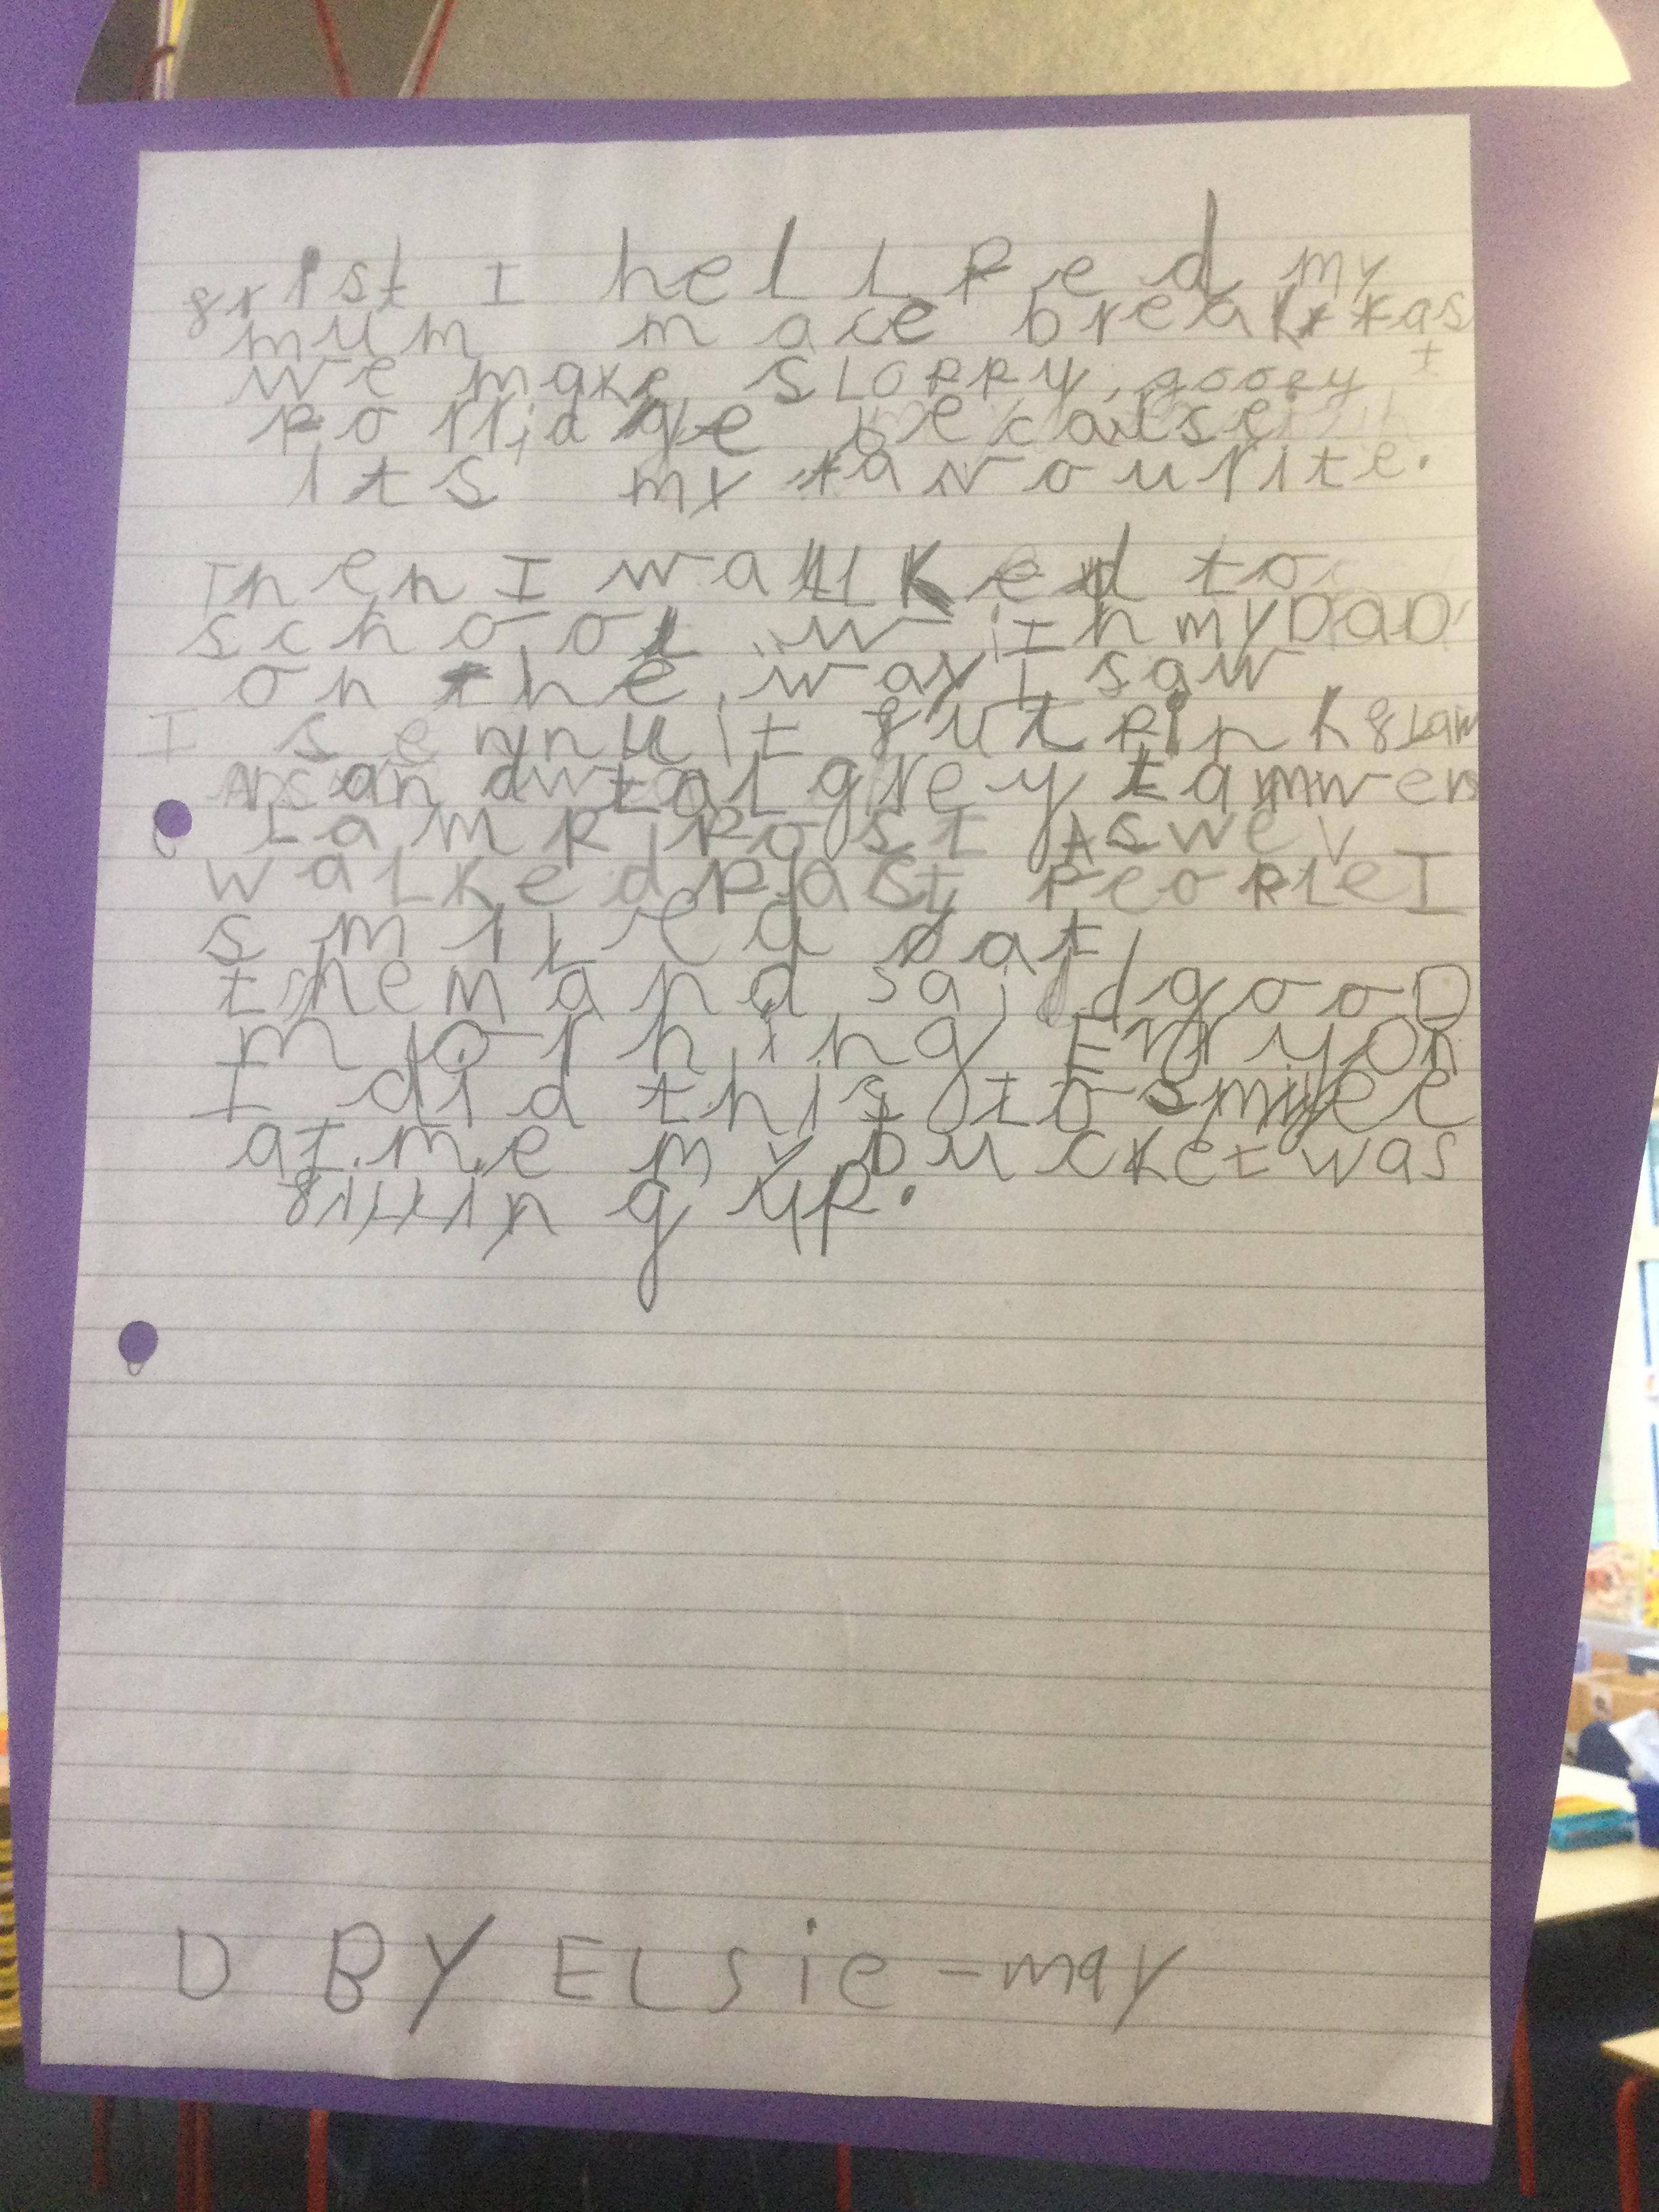 frist I hellped my
mum mace breakfast
we make sloppy, gooey
porridge because
its my favourite.
Then I wallked to
school with my DaD
on the way I saw
I put pink flaw
ers and tal grey
Lamp post As we
walked past people I
smiled at
them and said gooD
morning
I did this to smile
at me my bucket was
filling up.
D BY ELsie-may